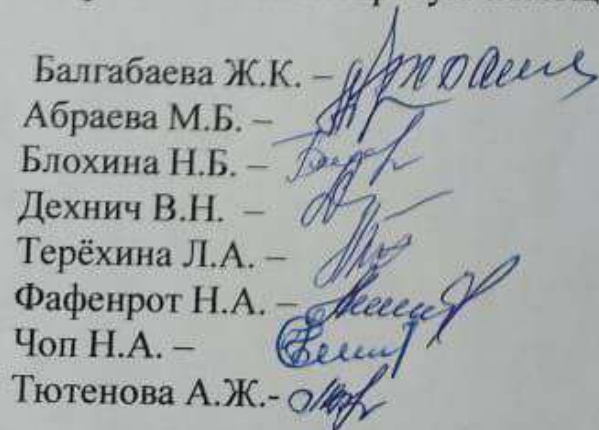 Балгабаева Ж.К. –
Абраева М.Б. –
Блохина Н.Б. –
Дехнич В.Н. –
Терёхина Л.А. –
Фафенрот Н.А. –
Чоп Н.А. –
Тютенова А.Ж.-